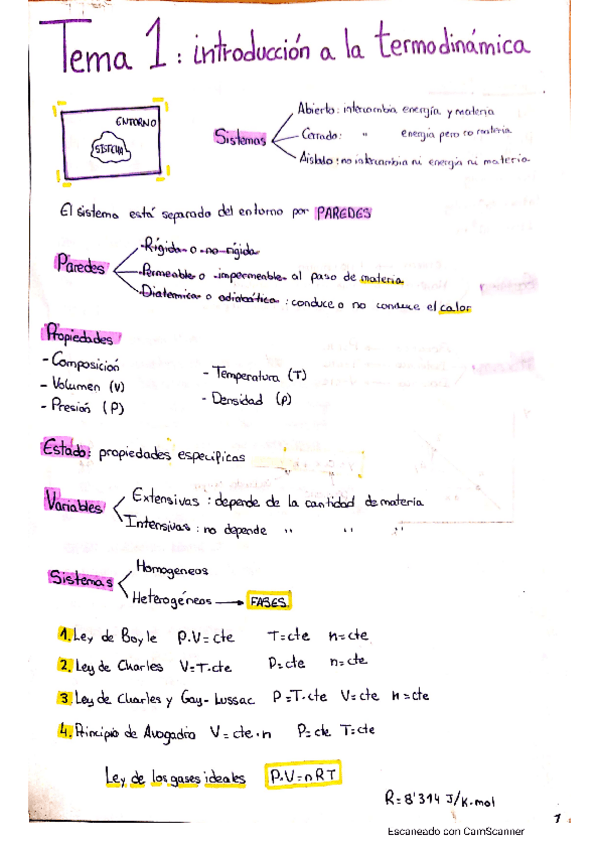 Tema 1: introducción a la termodinámica
ENTORNO
SISTEMA
Sistemas
Abierto: intercambia energía y materia
Cerrado: " energía pero no materia
Aislado: no intercambia ni energía ni materia
El sistema está separado del entorno por PAREDES
Paredes
-Rígida o no rígida
-Permeable o impermeable al paso de materia
-Diatermica o adiabática: conduce o no conduce el calor
Propiedades
- Composición
- Volumen (V)
- Presión (P)
- Temperatura (T)
- Densidad (ρ)
Estado: propiedades especificas
Variables
Extensivas: depende de la cantidad de materia
Intensivas: no depende " " "
Sistemas
Homogeneos
Heterogéneos → FASES
1. Ley de Boyle P.V=cte T=cte n=cte
2. Ley de Charles V=T.cte P=cte n=cte
3 Ley de Charles y Gay-Lussac P=T.cte V=cte n=cte
4. Principio de Avogadro V=cte.n P=cte T=cte
Ley de los gases ideales P.V=nRT
R=8'314 J/K.mol
1
Escaneado con CamScanner